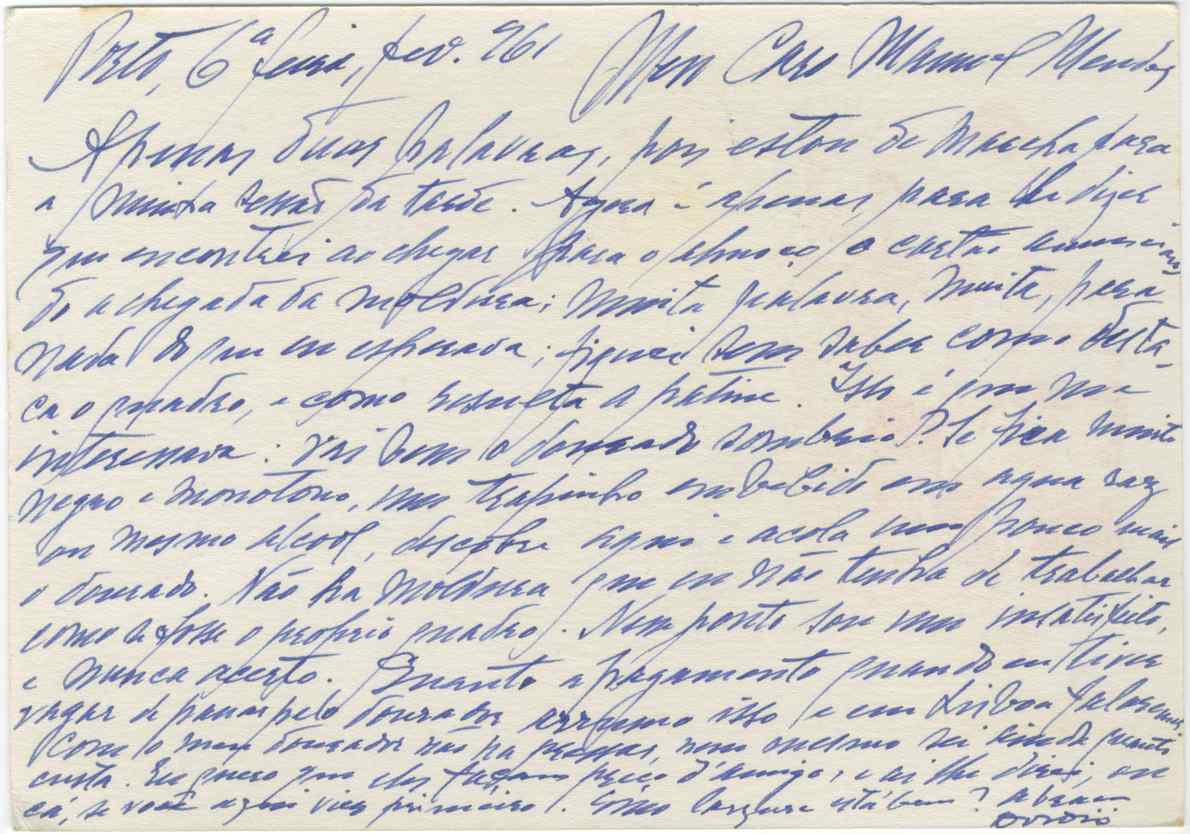 Porto, 6ª feira, fev. 961 Meu Caro Manuel Mendes
Apenas duas palavras, pois estou de marcha para
a minha sessão da tarde. Agora é apenas para lhe dizer
que encontrei ao chegar para o almoço o cartão anuncian
do a chegada da moldura; muita palavra, muita, para
nada do que eu esperava; fiquei sem saber como desta-
ca o quadro, e como resulta a patine. Isso é que me
interessava: vai bem o dourado sombrio? Se fica muito
negro e monotono, um trapinho embebido em agua raz
ou mesmo alcool, descobre aqui e acola um pouco mais
o dourado. Não ha moldura que eu não tenha de trabalhar
como se fosse o proprio quadro. Nem ponto sou um insatisfeito,
e nunca acerto. Quanto a pagamento quando eu tiver
vagar de passar pelo dourador arrumo isso e em Lisboa falaremos
Com o meu dourador não ha pressas, nem mesmo sei ainda quanto
custa. Eu quero que eles façam preço d'amigo, e ai lhe direi, ou
cá, se você aqui vier primeiro. Como largura está bem? abraço
Dordio